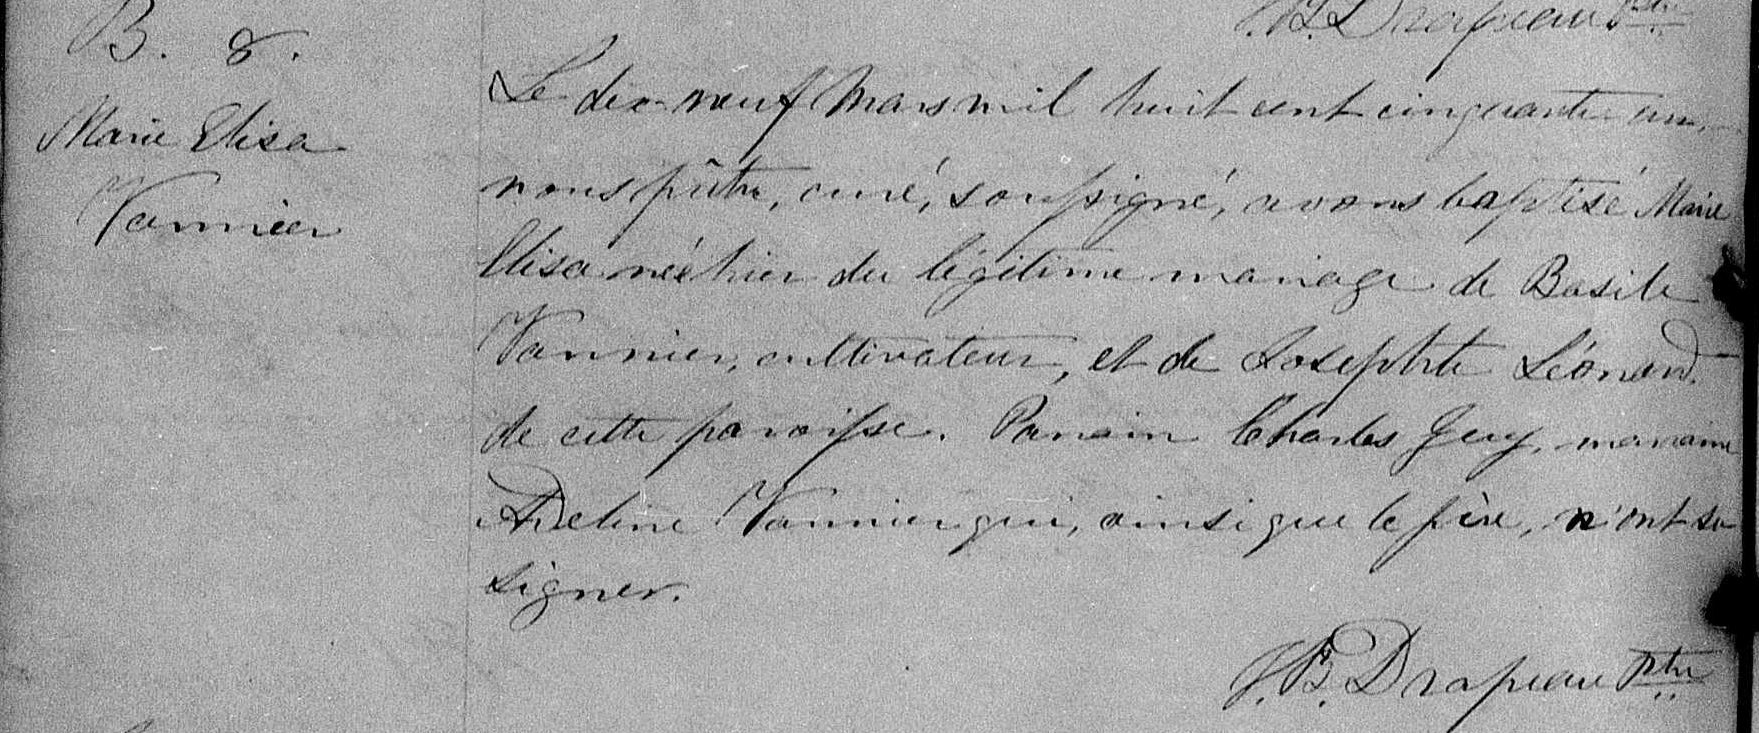 J.B. Drapeau Ptre
B. 8.
Marie Elisa
Vannier
Le dix-neuf Mars mil huit cent cinquante un,
nous prêtre, curé, soussigné, avons baptisé Marie
Elisa née hier du légitime mariage de Basile
Vannier, cultivateur, et de Josephte Léonard
de cette paroisse. Parrain Charles Guy, marraine
Adeline Vannier qui, ainsi que le père, n'ont su
signer.
J.B. Drapeau Ptre